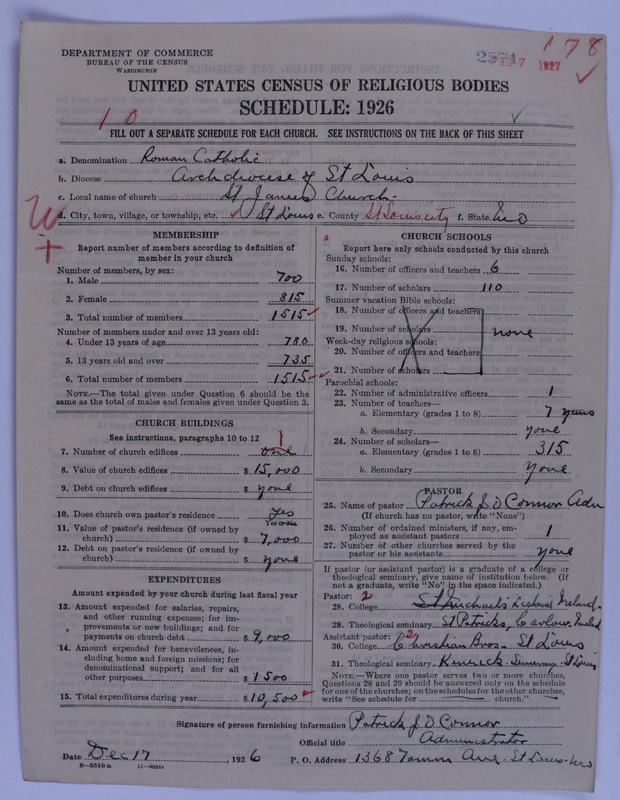 178
2554
FEB 7 1927
DEPARTMENT OF COMMERCE
BUREAU OF THE CENSUS
WASHINGTON
UNITED STATES CENSUS OF RELIGIOUS BODIES
SCHEDULE: 1926
10
FILL OUT A SEPARATE SCHEDULE FOR EACH CHURCH. SEE INSTRUCTIONS ON THE BACK OF THIS SHEET
a. Denomination Roman Catholic
b. Diocese Archdiocese of St Louis
c. Local name of church St James Church
d. City, town, village, or township, etc. St Louis e. County St Louis city f. State Mo
MEMBERSHIP
Report number of members according to definition of
member in your church
Number of members, by sex:
1. Male 700
2. Female 815
3. Total number of members 1515
Number of members under and over 13 years old:
4. Under 13 years of age 780
5. 13 years old and over 735
6. Total number of members 1515
NOTE.—The total given under Question 6 should be the
same as the total of males and females given under Question 3.
CHURCH BUILDINGS
See instructions, paragraphs 10 to 12
7. Number of church edifices one 1
8. Value of church edifices $ 15,000
9. Debt on church edifices $ none
10. Does church own pastor's residence yes
Yes or No
11. Value of pastor's residence (if owned by
church) $ 7,000
12. Debt on pastor's residence (if owned by
church) $ none
EXPENDITURES
Amount expended by your church during last fiscal year
13. Amount expended for salaries, repairs,
and other running expenses; for im-
provements or new buildings; and for
payments on church debt $ 9,000
14. Amount expended for benevolences, in-
cluding home and foreign missions; for
denominational support; and for all
other purposes $ 1500
15. Total expenditures during year $ 10,500
CHURCH SCHOOLS
Report here only schools conducted by this church
Sunday schools:
16. Number of officers and teachers 6
17. Number of scholars 110
Summer vacation Bible schools:
18. Number of officers and teachers
19. Number of scholars none
Week-day religious schools:
20. Number of officers and teachers
21. Number of scholars
Parochial schools:
22. Number of administrative officers 1
23. Number of teachers—
a. Elementary (grades 1 to 8) 7
b. Secondary none
24. Number of scholars—
a. Elementary (grades 1 to 8) 315
b. Secondary none
PASTOR
25. Name of pastor Patrick J O Connor Adm
(If church has no pastor, write "None")
26. Number of ordained ministers, if any, em-
ployed as assistant pastors 1
27. Number of other churches served by the
pastor or his assistants none
If pastor (or assistant pastor) is a graduate of a college or
theological seminary, give name of institution below. (If
not a graduate, write "No" in the space indicated.)
Pastor: 2
28. College St Michaels Ireland
29. Theological seminary St Patricks, Carlow Ireland
Assistant pastor: 2
30. College Christian Bros. St Louis
31. Theological seminary Kenrick Seminary St Louis
NOTE.—Where one pastor serves two or more churches,
Questions 28 and 29 should be answered only on the schedule
for one of the churches; on the schedules for the other churches,
write "See schedule for church."
Signature of person furnishing information Patrick J O Connor
Official title Administrator
Date Dec 17, 1926 P. O. Address 1368 Tamm Ave. St Louis Mo
8—5518a